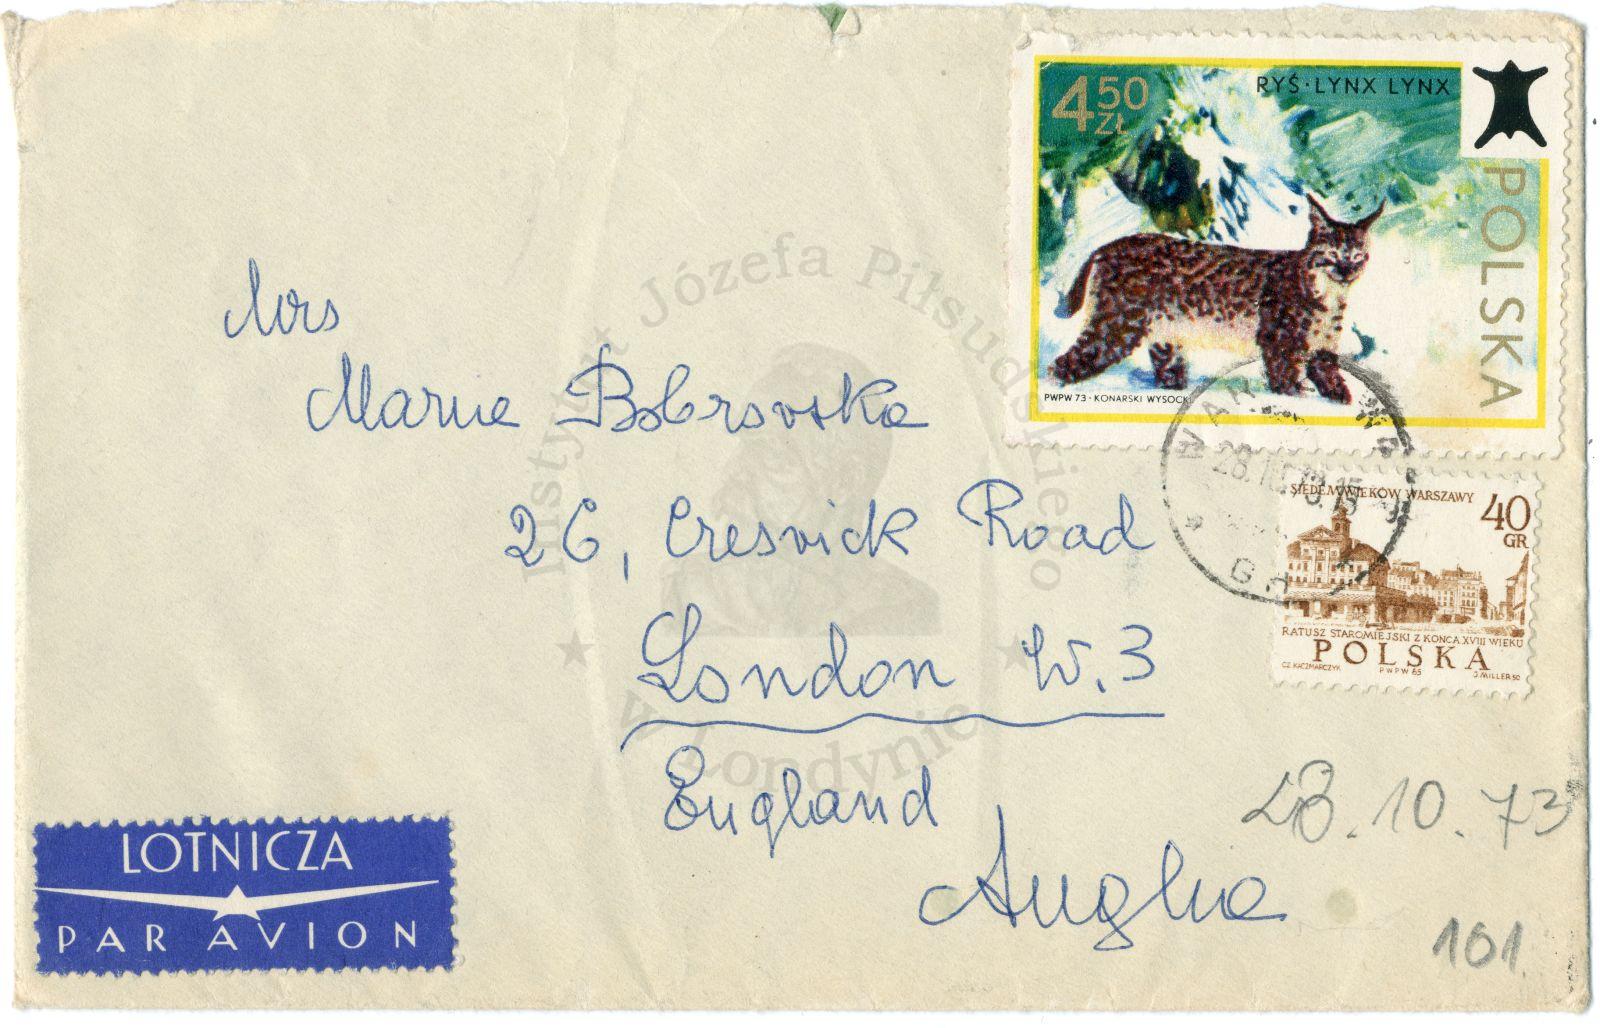 4.50
ZŁ
RYŚ·LYNX LYNX
POLSKA
PWPW 73 · KONARSKI WYSOCKI
SIEDEM WIEKÓW WARSZAWY
40
GR
RATUSZ STAROMIEJSKI Z KOŃCA XVIII WIEKU
POLSKA
CZ. KACZMARCZYK
PWPW 65
J. MILLER SC
28.10.73.15
Mrs
Marne Bobrovska
26, Cresvick Road
London W.3
England
Anglia
28.10.73
101.
LOTNICZA
PAR AVION
Instytut Józefa Piłsudskiego
w Londynie